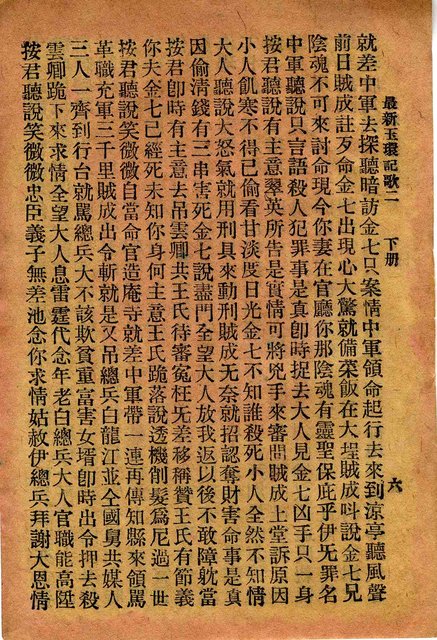 最新玉環記歌二　下册　六
就差中軍去探聽暗訪金七只案情中軍領命起行去來到涼亭聽風聲
前日賊成註歹命金七出現心大驚就備菜飯在大埕賊成呌說金七兄
陰魂不可來討命現今你妻在官廳你那陰魂有靈聖保庇乎伊无罪名
中軍聽說只言語殺人犯罪事是真卽時捉去大人見金七凶手只一身
按君聽說有主意翠英所告是實情可將兇手來審問賊成上堂訴原因
小人飢寒不得已偷看甘淡度日光金七不知誰殺死小人全然不知情
大人聽說大怒氣就用刑具來動刑賊成无奈就招認奪財害命事是真
因偷清錢有三串害死金七說盡門全望大人放我返以後不敢障躭當
按君卽時有主意去吊雲卿共王氏待審冤枉旡差移稱贊王氏有節義
你夫金七已經死未知你身何主意王氏跪落說透機削髮爲尼過一世
按君聽說笑微微自當命官造庵寺就差中軍帶一連再傳知縣來領罵
革職充軍三千里賊成出令斬就是又吊總兵白龍江並仝國舅共媒人
三人一齊到行台就罵總兵大不該欺貧重富害女壻卽時出令押去殺
雲卿跪下來求情全望大人息雷霆代念年老白總兵大人官職能高陞
按君聽說笑微微忠臣義子無差池念你求情姑赦伊總兵拜謝大恩情